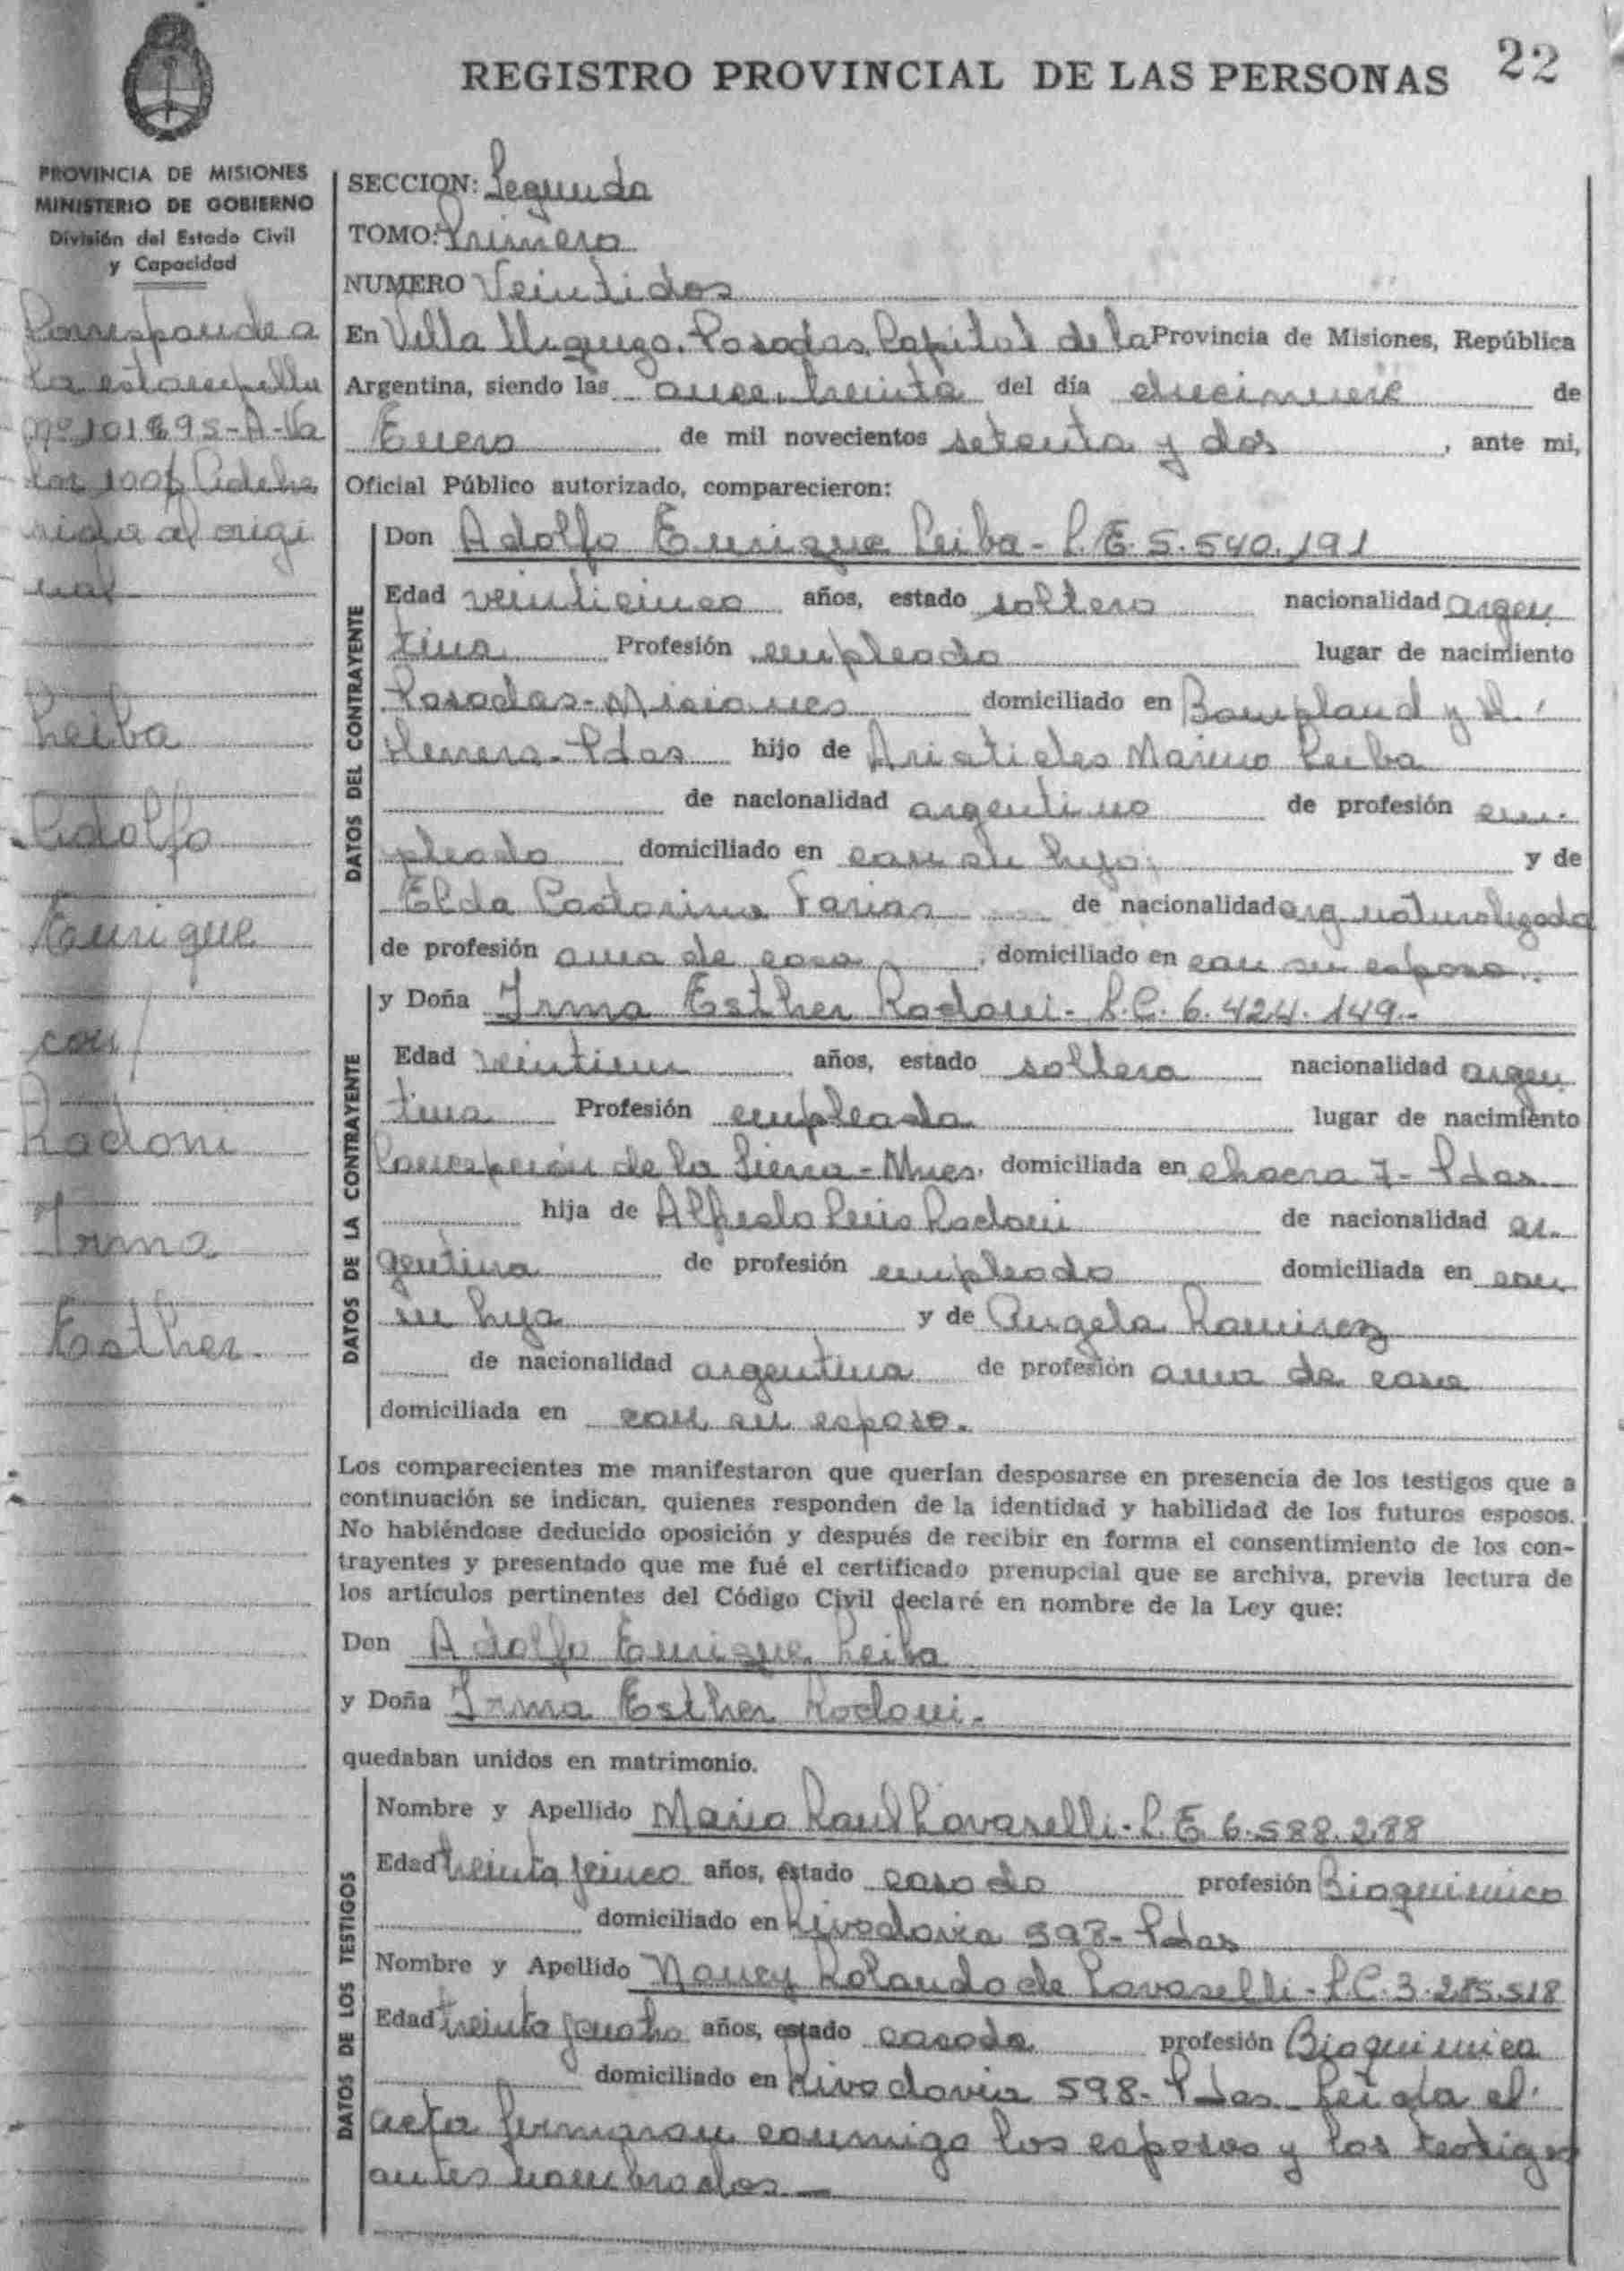 22
REGISTRO PROVINCIAL DE LAS PERSONAS
PROVINCIA DE MISIONES
MINISTERIO DE GOBIERNO
División del Estado Civil
y Capacidad
Corresponde a
la estampilla
nº 101895-A-Va
lor 100$ Adehe
rida al origi
nal
Leiba
Adolfo
Enrique
con/
Rodoni
Irma
Esther.
SECCION: Segunda
TOMO: Primero
NUMERO Veintidos
En Villa Urquiza. Posadas, Capital de la Provincia de Misiones, República
Argentina, siendo las once, treinta del día diecinueve de
Enero de mil novecientos setenta y dos, ante mi,
Oficial Público autorizado, comparecieron:
DATOS DEL CONTRAYENTE
Don Adolfo Enrique Leiba - L.E. 5.540.191
Edad veinticinco años, estado soltero nacionalidad argen
tina Profesión empleado lugar de nacimiento
Posadas-Misiones domiciliado en Bompland y H.
Herrera-Pdas hijo de Aristides Marino Leiba
de nacionalidad argentino de profesión em-
pleado domiciliado en con su hijo y de
Elda Castorina Farias de nacionalidad arg. naturalizada
de profesión ama de casa, domiciliado en con su esposo.
DATOS DE LA CONTRAYENTE
y Doña Irma Esther Rodoni - L.C. 6.424.149.-
Edad veintiun años, estado soltera nacionalidad argen
tina Profesión empleada lugar de nacimiento
Concepción de la Sierra-Mnes, domiciliada en chacra 7- Pdas
hija de Alfredo Luis Rodoni de nacionalidad ar-
gentina de profesión empleado domiciliada en con
su hija y de Angela Ramirez
de nacionalidad argentina de profesión ama de casa
domiciliada en con su esposo.
Los comparecientes me manifestaron que querían desposarse en presencia de los testigos que a
continuación se indican, quienes responden de la identidad y habilidad de los futuros esposos.
No habiéndose deducido oposición y después de recibir en forma el consentimiento de los con-
trayentes y presentado que me fué el certificado prenupcial que se archiva, previa lectura de
los artículos pertinentes del Código Civil declaré en nombre de la Ley que:
Don Adolfo Enrique Leiba
y Doña Irma Esther Rodoni.
quedaban unidos en matrimonio.
DATOS DE LOS TESTIGOS
Nombre y Apellido Mario Raul Lovaselli - L.E. 6.588.288
Edad treinta y cinco años, estado casado profesión Bioquimico
domiciliado en Rivadavia 598- Pdas
Nombre y Apellido Nancy Rolando de Lovaselli - L.C. 3.285.518
Edad treinta y cuatro años, estado casada profesión Bioquimica
domiciliado en Rivadavia 598- Pdas- Leida el
acta firmaron conmigo los esposos y los testigos
antes nombrados.-